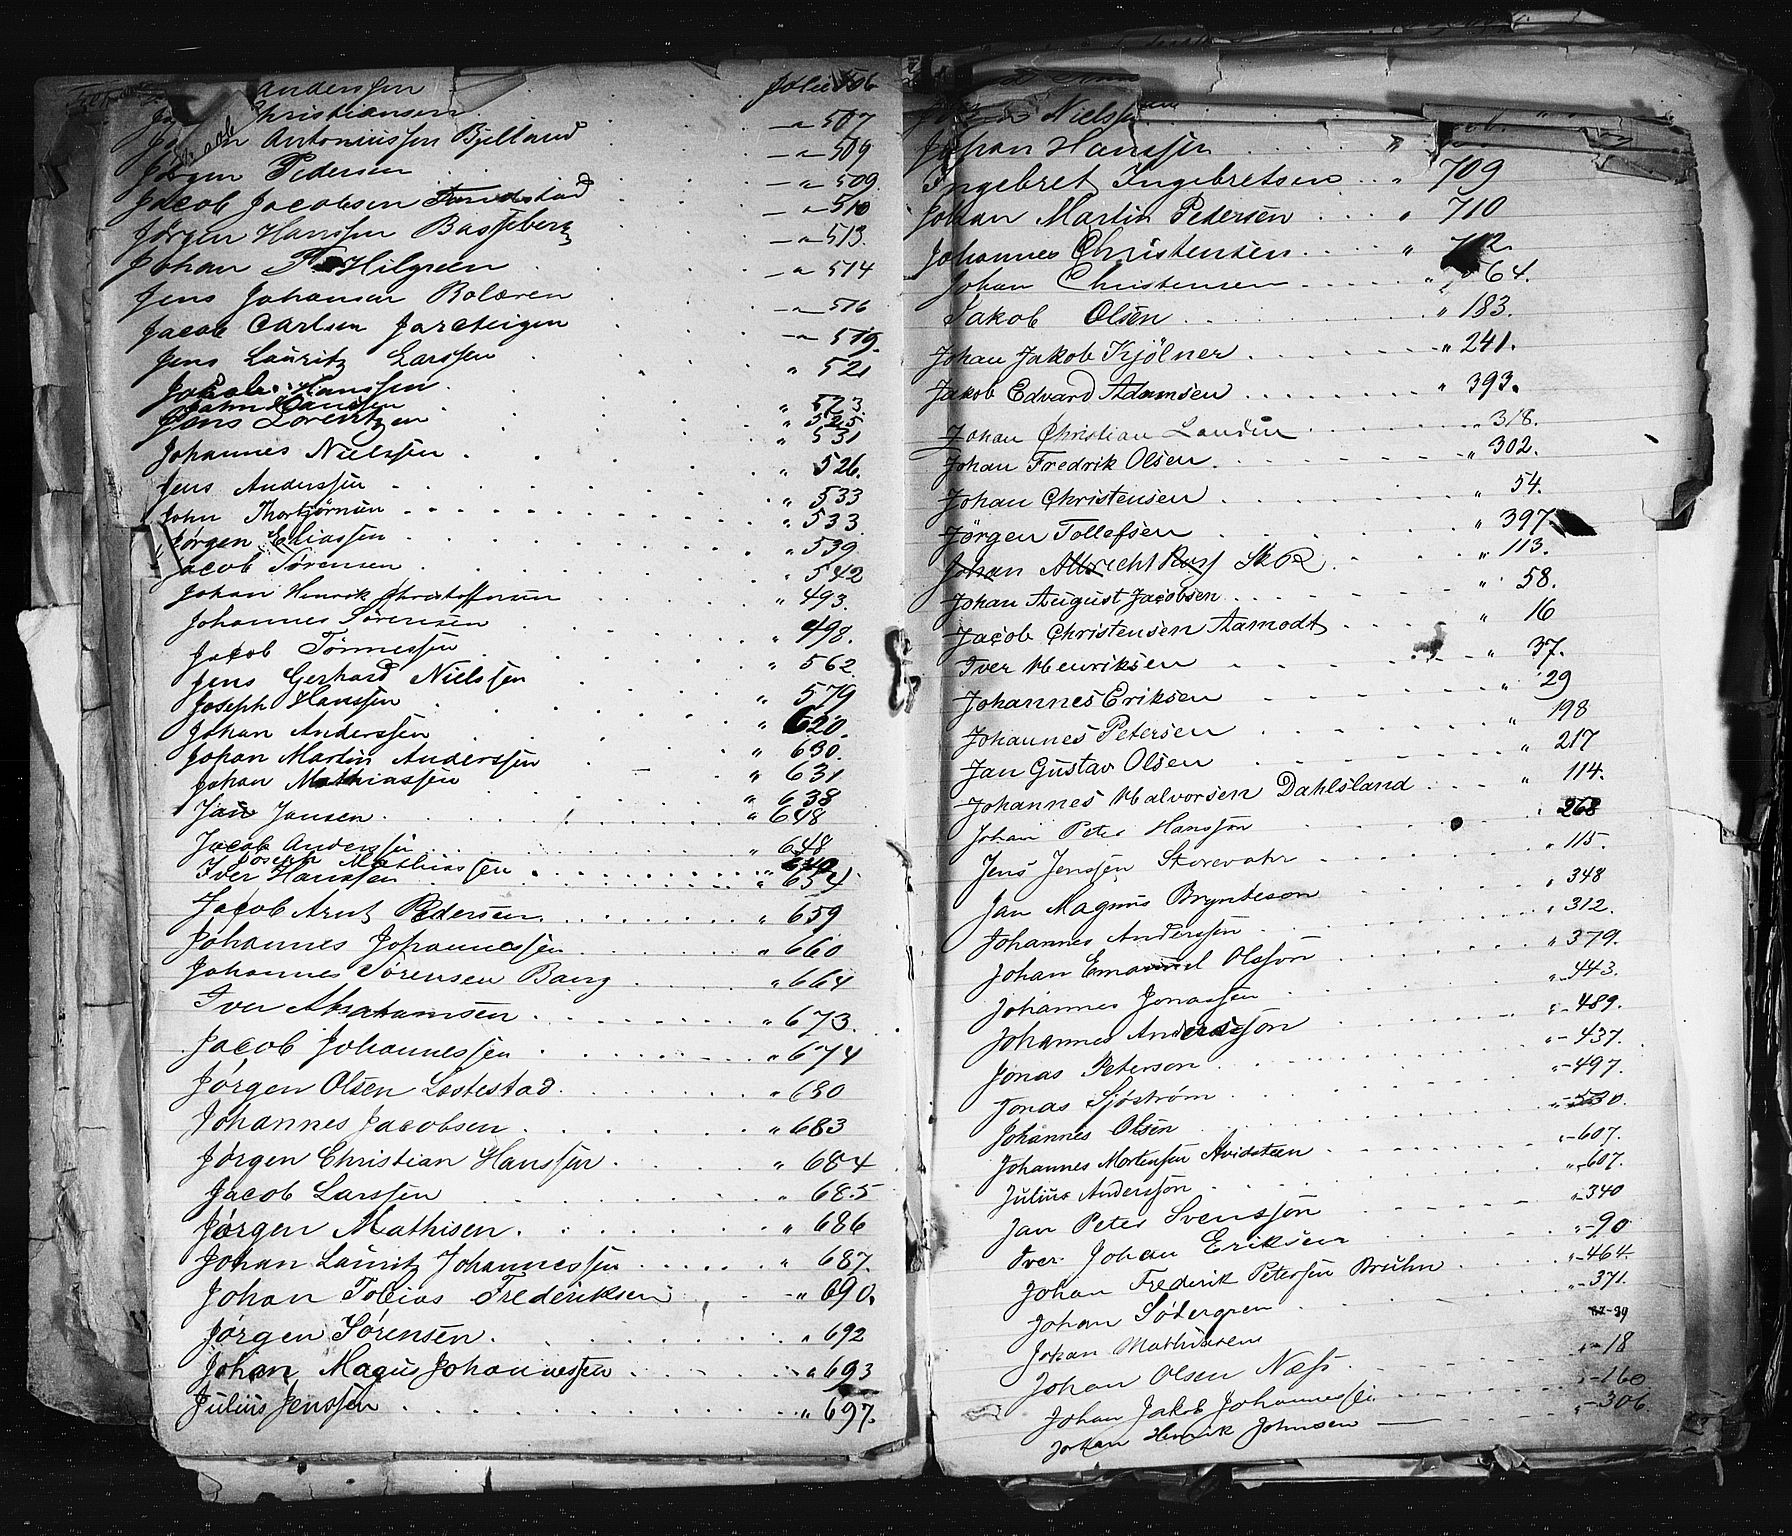 Anderssen Folio 506
Christiansen — " — 507
Jacob Antoniussen Bjelland — " — 509
Jørgen Pedersen — " — 509
Jacob Jacobsen — " — 510
Jørgen Hanssen Basseberg — " — 513
Johan Hilgreen — " — 514
Jens Johansen Bolæren — " — 516
Jacob Carlsen Jareteigen — " — 519.
Jens Lauritz Larssen " 521
Jakob Hanssen " 523
" 525
Jens Lorentzen " 531
Johannes Nielssen " 526.
Jens Anderssen " 533
John Thorbjørnsen " 533
Jørgen Eliassen " 539
Jacob Sørensen " 542
Johan Henrik Christoffersen " 493.
Johannes Sørensen " 498.
Jacob Tønnessen " 562
Jens Gerhard Nielssen " 579
Joseph Hanssen " 620.
Johan Anderssen " 630.
Johan Martin Anderssen " 631
Johan Mathiassen " 638
Jan Jansen " 648
Jacob Anderssen " 648
Joseph Mathiassen " 640
Iver Hanssen " 654
Jacob Arnt Pedersen " 659
Johannes Johannessen " 660
Johannes Sørensen Bang " 664
Iver Abrahamsen " 673.
Jacob Johannessen " 674
Jørgen Olsen Løstestad " 680
Johannes Jacobsen " 683
Jørgen Christian Hanssen " 684
Jacob Larssen " 685
Jørgen Mathisen " 686
Johan Lauritz Johannessen " 687.
Johan Tobias Frederiksen " 690.
Jørgen Sørensen " 692
Johan Magnus Johannessen " 693
Julius Jenssen " 697.
Nielsen
Johan Hanssen "
Ingebret Ingebretsen " 709
Johan Martin Pedersen " 710
Johannes Christensen " 712
Johan Christensen " 64.
Jakob Olsen " 183.
Johan Jakob Kjölner " 241.
Jakob Edvard Adamsen " 393.
Johan Christian Landin " 318.
Johan Fredrik Olsen " 302.
Johan Christensen " 54.
Jørgen Tollefsen " 397
Johan Albrecht " 113.
Johan August Jacobsen " 58.
Jacob Christensen Aamodt " 16
Iver Henriksen " 37.
Johannes Eriksen " 29
Johannes Petersen " 198
Jan Gustav Olsen " 217
Johannes Halvorsen Dahlsland " 114.
Johan Peter Hansson " 268
Jens Jenssen Storevahr " 115.
Jan Magnus Brynteson " 348
Johannes Anderssen " 312.
Johan Emanuel Olsson " 379.
Johannes Jonassen " 443.
Johannes Andersson " 489.
Jonas Peterson " 437.
Jonas Sjöström " 497.
Johannes Olsen " 530.
Johannes Mortensen Hvidsteen " 607.
Julius Andersson " 607.
Jan Peter Svensson " 340
Iver Johan Eriksen " 90
Johan Frederik Petersen Bruhn " 464
Johan Södergren " 371.
Johan Mathisen
Johan Olsen Næss " 18
Johan Jakob Johannessen " 160
Johan Henrik Johnsen " 306.